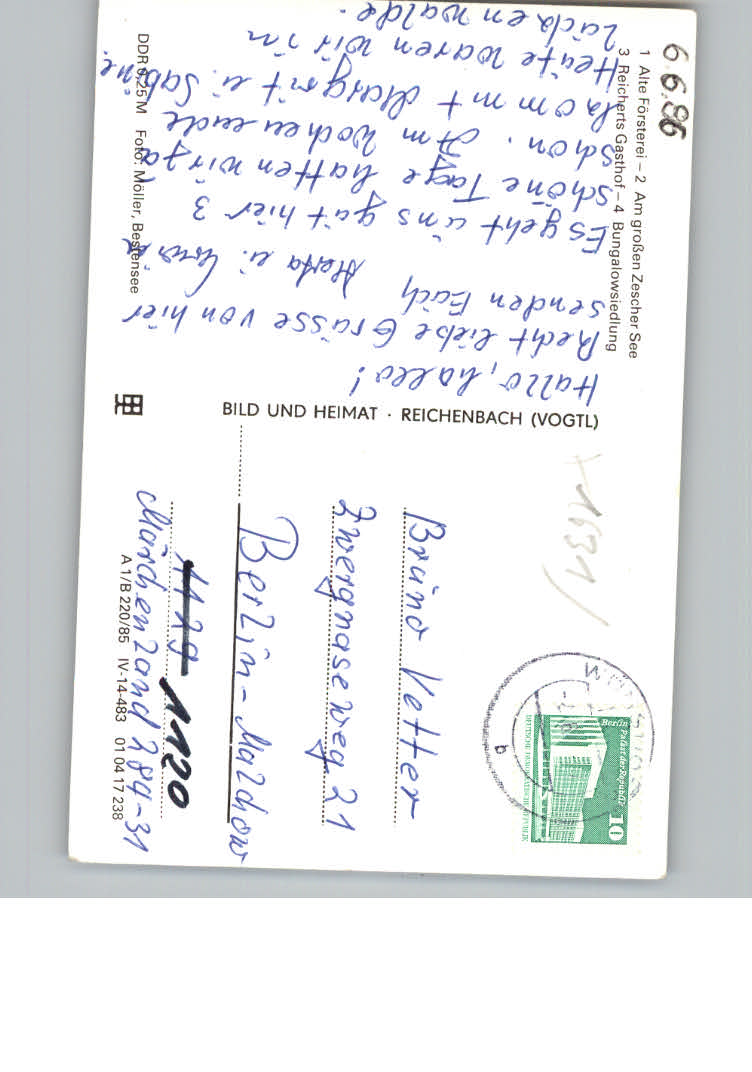 1 Alte Försterei – 2 Am großen Zescher See
3 Reicherts Gasthof – 4 Bungalowsiedlung
6.6.86
Hallo, hallo!
Recht liebe Grüsse von hier
senden Euch Herta u.
Es geht uns gut hier 3
schöne Tage hatten wir ja
schon. Am Wochenende
kommt Margrit u. Sabine.
Heute waren wir in
Luckenwalde.
DDR 0,25 M Foto: Möller, Bestensee
BILD UND HEIMAT · REICHENBACH (VOGTL)
Berlin
Palast der Republik
10
DEUTSCHE DEMOKRATISCHE REPUBLIK
b
Bruno Vetter
Zwergnaseweg 21
Berlin-Malchow
1129 1120
Märchenland 284-31
A 1/B 220/85 IV-14-483 01 04 17 238